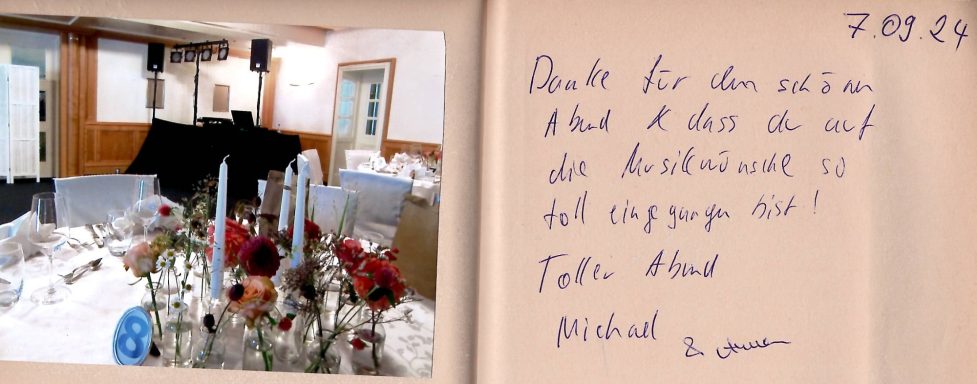 8
7.09.24
Danke für den schönen
Abend & dass du auf
die Musikwünsche so
toll eingegangen bist!
Toller Abend
Michael &